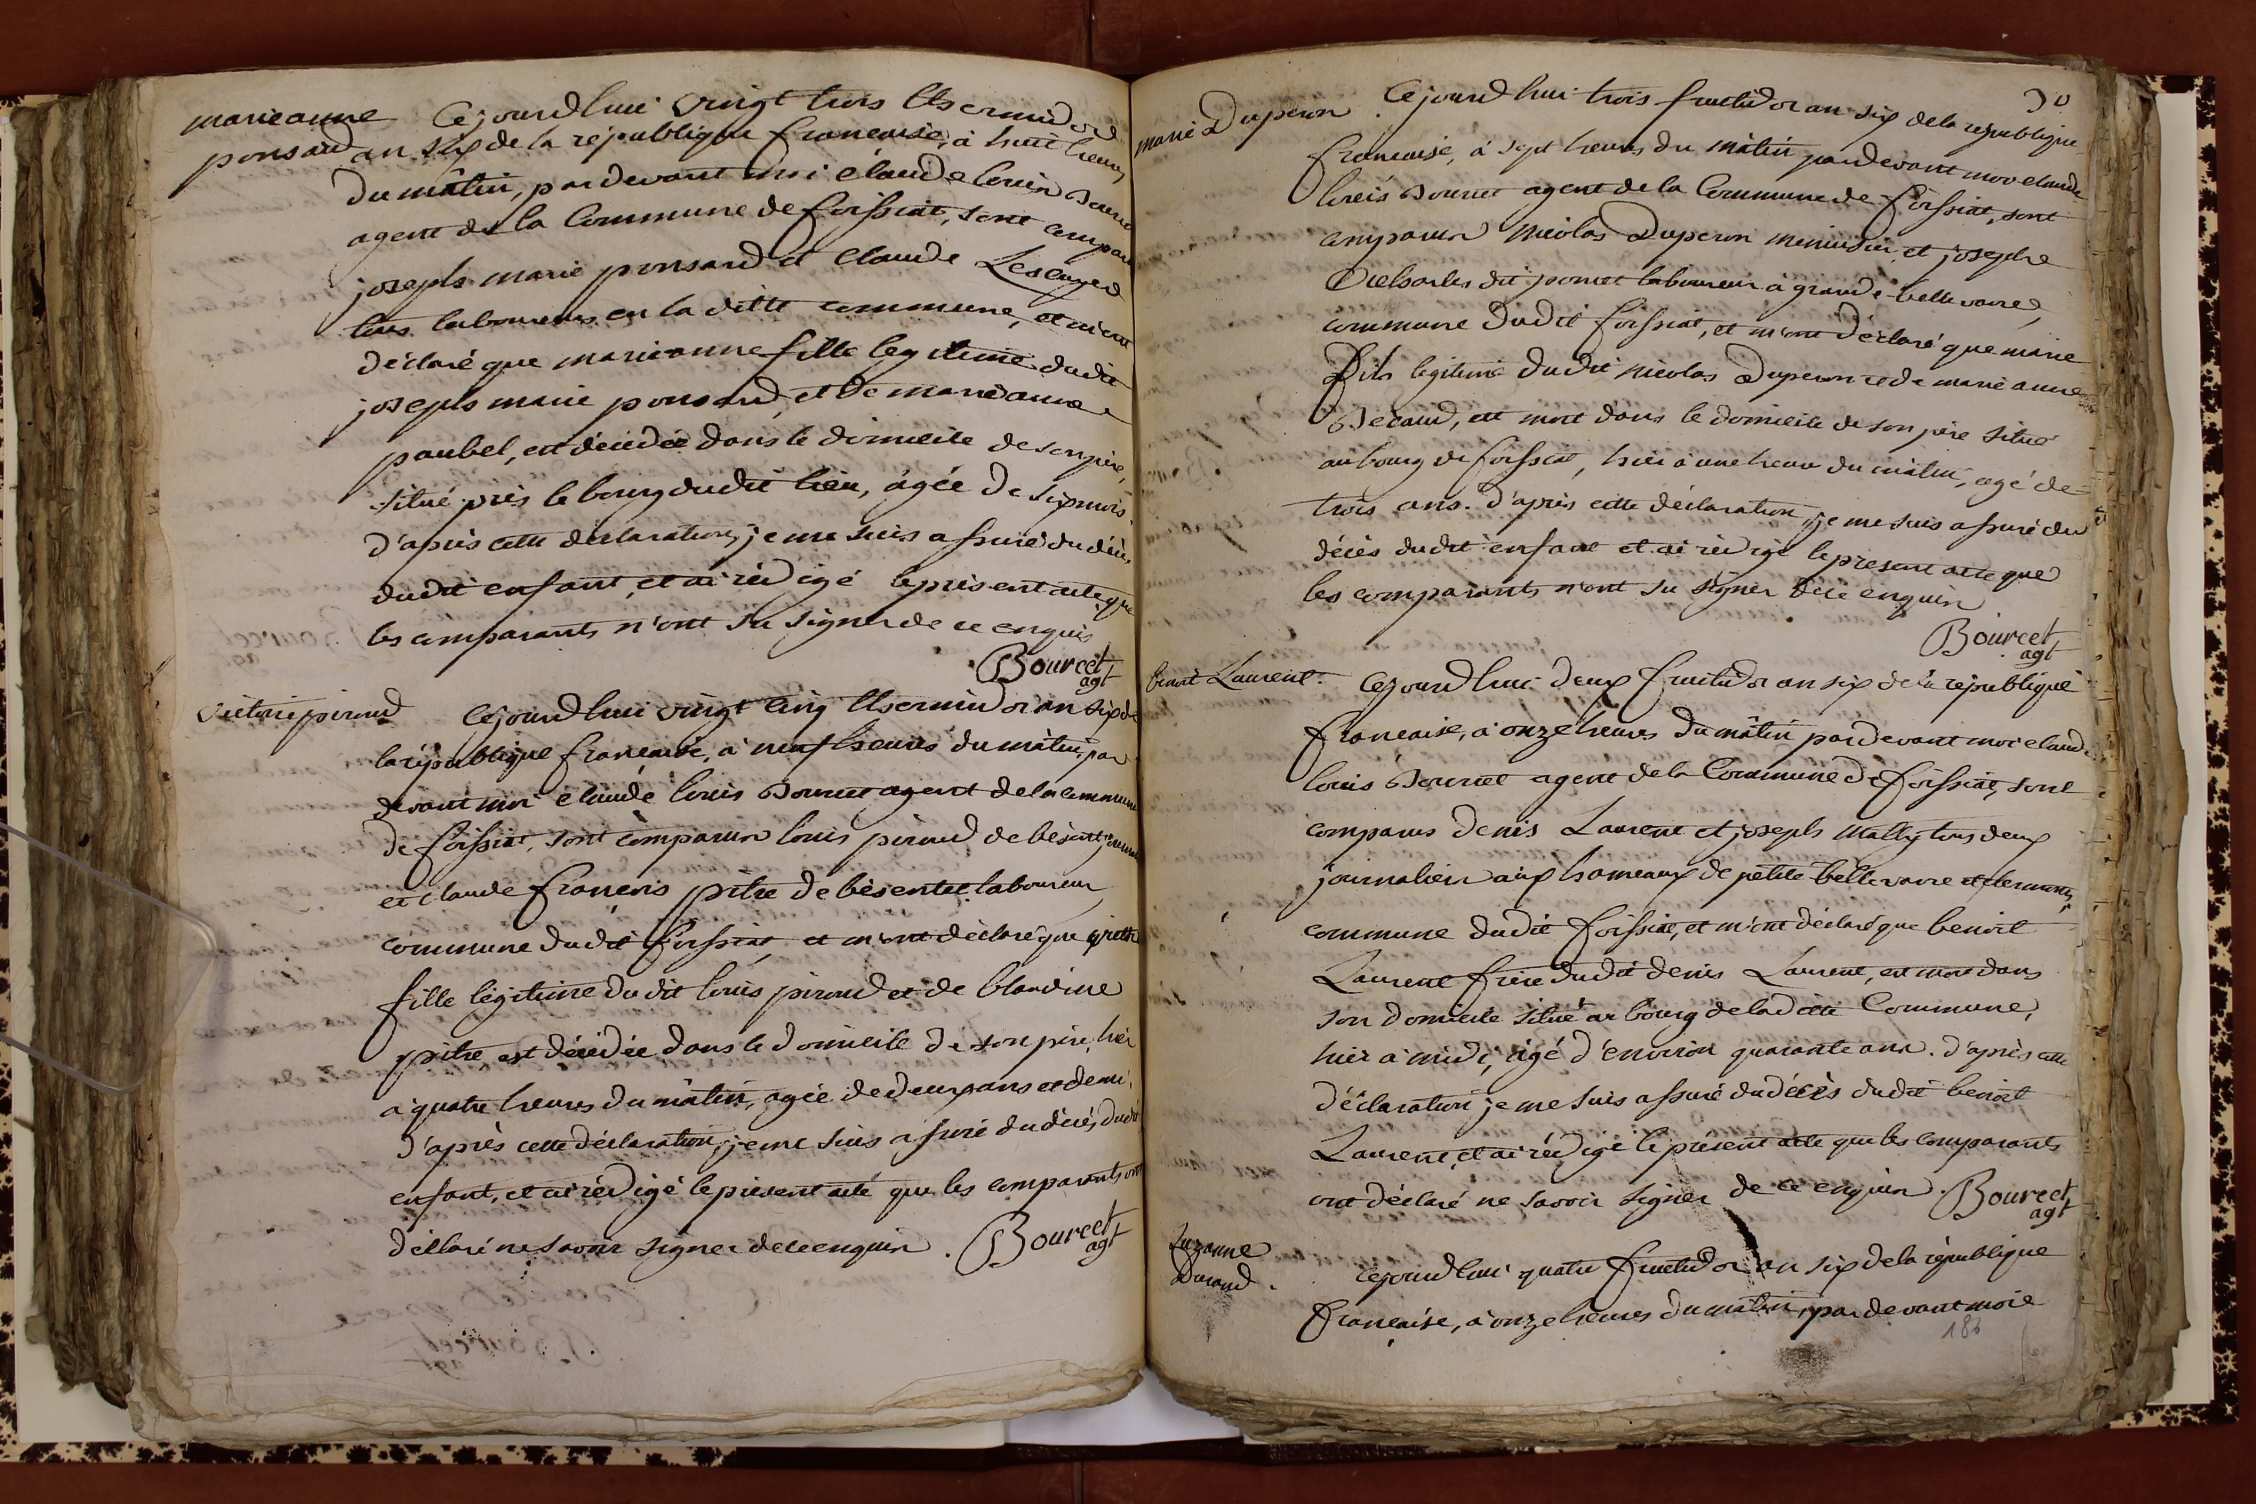 marieanne
ponsard
Cejourdhui vingt trois thermidor
an six de la république française, à huit heures
du mâtin, pardevant moi claude louis Bourcet
agent de la Commune de foissiat, sont comparu
joseph marie ponsard et Claude
tous laboureurs en la ditte commune, et m'ont
déclaré que marieanne fille legitime dudit
joseph marie ponsard, et de marieanne
paubel, est décédée dans le domicile de son père,
situé près le bourg dudit lieu, âgée de six mois.
d'après cette déclaration, je me suis assuré du décès
dudit enfant, et ai rédigé le présent acte que
les comparants n'ont su signer de ce enquis
Bourcet
agt
victoire piroud
Cejourdhui vingt cinq thermidor an six de
la république française, à neuf heures du mâtin, par
devant moi claude louis Bourcet agent de la commune
de foissiat, sont comparus louis piroud de bésentet
et claude françois pitre de bésentet laboureur
commune dudit foissiat, et m'ont déclaré que
fille légitime dudit louis piroud et de blandine
pitre est décédée dans le domicile de son père, hier
a quatre heures du mâtin, agée de deux ans et demi.
d'après cette déclaration, je me suis assuré du décès dudit
enfant, et ai rédigé le présent acte que les comparants ont
déclaré ne savoir signer de ce enquis.
Bourcet
agt
30
marie Duperon
Cejourdhui trois fructidor an six de la republique
francaise, à sept heures du mâtin pardevant moi claude
louis Bourcet agent de la Commune de foissiat, sont
comparus nicolas Duperon menuisier, et joseph
dit laboureur à grande bellevavre,
commune dudit foissiat, et m'ont déclaré que marie
fils legitime dudit nicolas Duperon et de marie anne
est mort dans le domicile de son père situé
au bourg de foissiat, hier à une heure du mâtin, agé de
trois ans. d'après cette déclaration, je me suis assuré du
décès dudit enfant et ai rédigé le present acte que
les comparants n'ont su signer de ce enquis
Bourcet
agt
benoit Laurent.
Cejourdhui deux fructidor an six de la république
française, à onze heures du mâtin pardevant moi claude
louis Bourcet agent de la Commune de foissiat, sont
comparus denis Laurent et joseph Mally tous deux
journaliers aux hameaux de petite bellevavre et
commune dudit foissiat, et m'ont déclaré que benoit
Laurent frère dudit denis Laurent, est mort dans
son domicile situé au bourg de ladite Commune,
hier à midi, agé d'environ quarante ans. d'après cette
déclaration je me suis assuré du décès dudit benoit
Laurent, et ai rédigé le présent acte que les comparants
ont déclaré ne savoir signer de ce enquis.
Bourcet
agt
Suzanne
Durand.
Cejourdhui quatre fructidor an six de la république
Française, à onze heures du mâtin, pardevant moi c
186